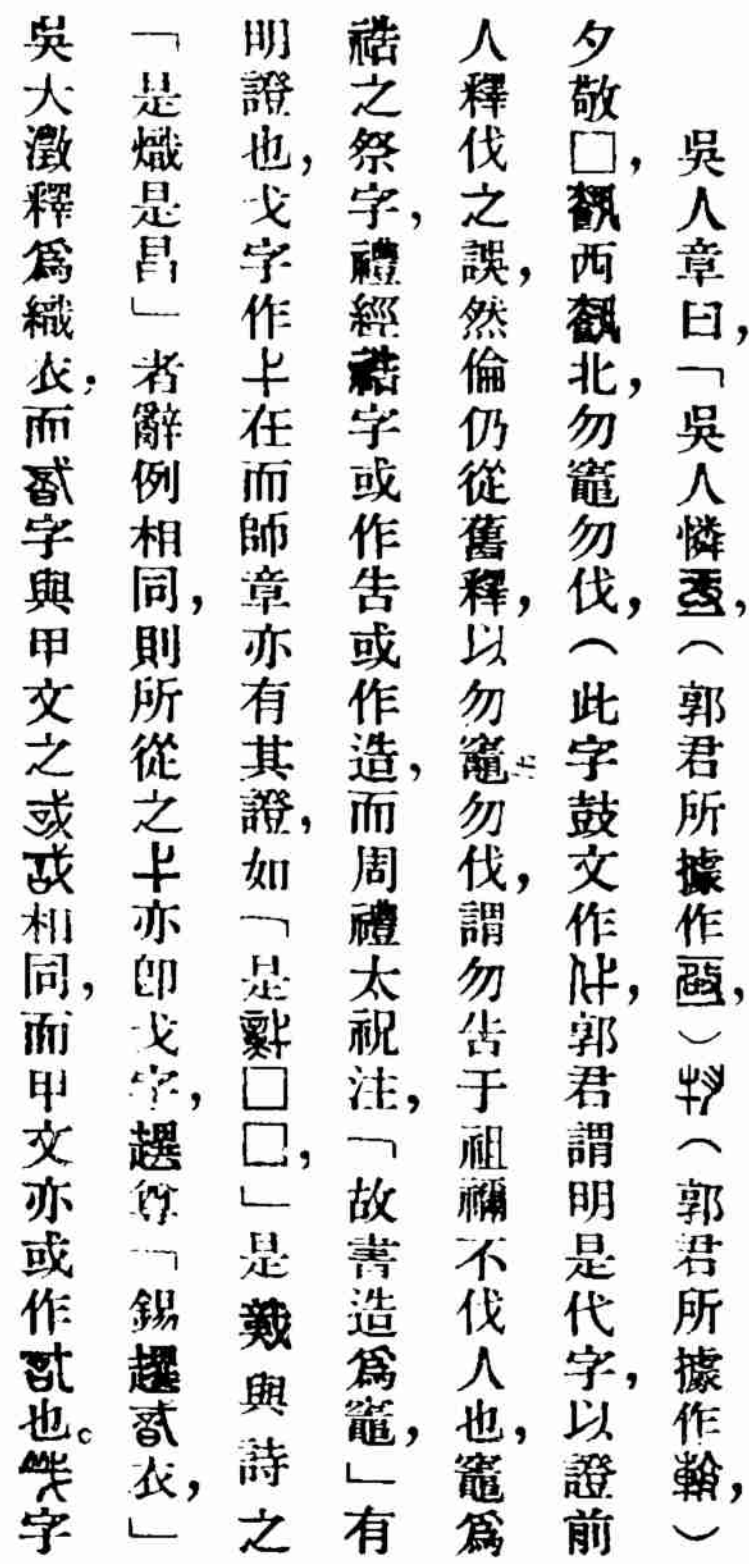 吳人章曰，「吳人憐，（郭君所據作，）（郭君所據作，）
夕敬□，西北，勿竈勿伐，（此字鼓文作，郭君謂明是代字，以證前
人釋伐之誤，然倫仍從舊釋，以勿竈勿伐，謂勿告于祖禰不伐人也，竈爲
祰之祭字，禮經祰字或作告或作造，而周禮太祝注，「故書造爲竈，」有
明證也，戈字作在而師章亦有其證，如「是□□，」是與詩之
「是熾是昌」者辭例相同，則所從之亦卽戈字，趩尊「錫趩衣，」
吳大澂釋爲織衣，而字與甲文之相同，而甲文亦或作也。字